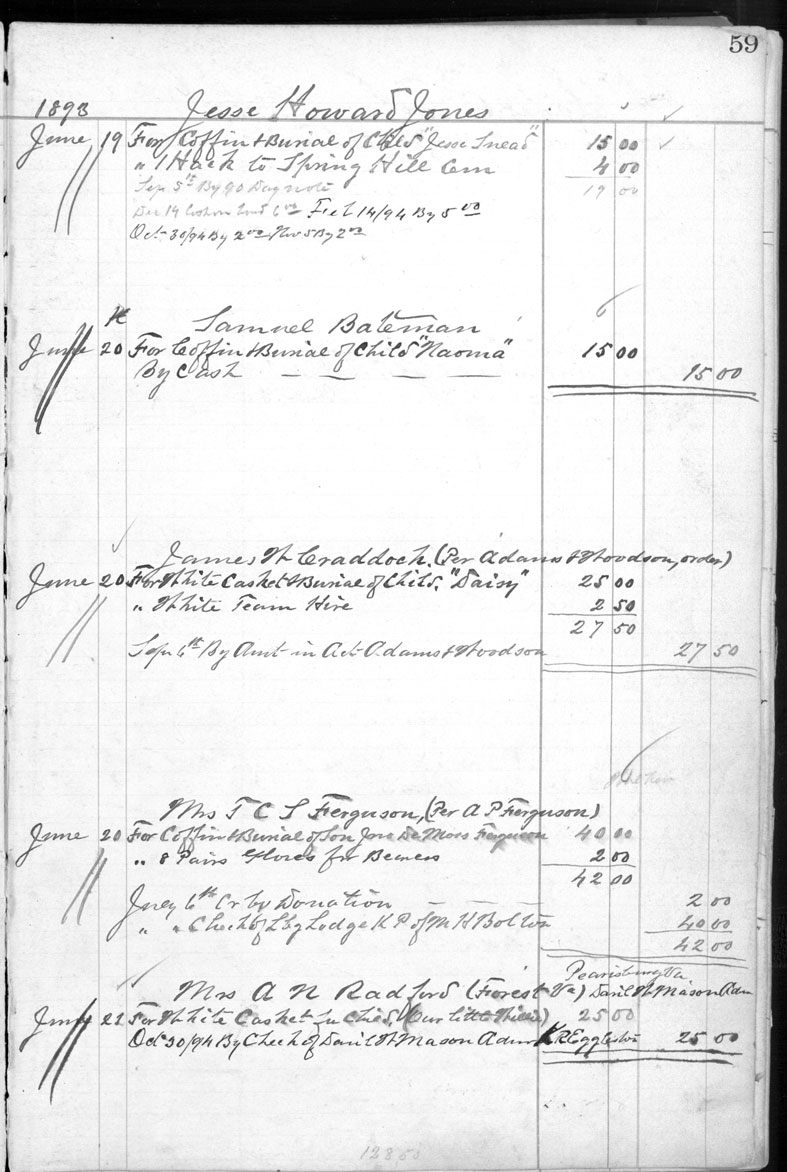 59
1893 Jesse Howard Jones
June 19 For Coffin & Burial of Child "Jesse Snead" 15 00
" 1 Hack to Spring Hill Cem 4 00
Sep 5th By 90 Day note 19 00
Dec 14 6 00 Feb 14/94 By 5 00
Oct 30/94 By 2 00 Nov 5 By 2 00
Samuel Bateman
June 20 For Coffin & Burial of Child "Naoma" 15 00
By Cash — — — — 15 00
James W Craddock, (Per Adams & Woodson, order)
June 20 For White Casket & Burial of Child, "Daisy" 25 00
" White Team Hire 2 50
27 50
Sep 6th By Amt in Act Adams & Woodson 27 50
Mrs T C S Ferguson, (Per A P Ferguson)
June 20 For Coffin & Burial of Son De Moss Ferguson 40 00
" 8 Pairs Gloves for Bearers 2 00
42 00
6th Cr by Donation — — — 2 00
" " Check of Lodge K P of M H Bolton 40 00
42 00
Pearisburg Va
Mrs A N Radford (Forest Va) Danl W Mason Adm
June 22 For White Casket for Child, (Our little Willie) 25 00
Oct 30/94 By Check of Danl W Mason Admr Eggleston 25 00
128 50